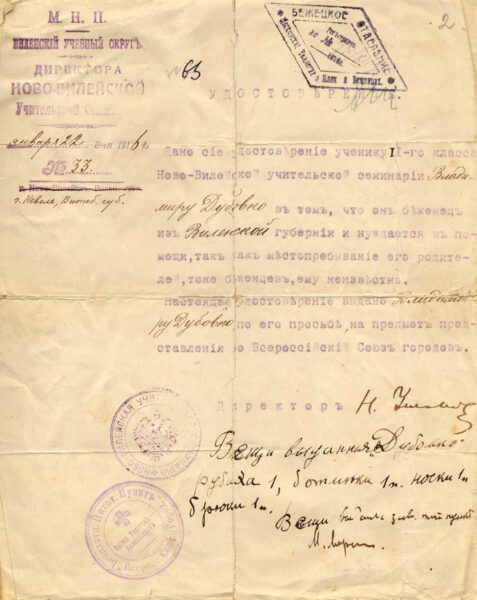 М. Н. П.
ВИЛЕНСКІЙ УЧЕБНЫЙ ОКРУГЪ.
ДИРЕКТОРА
НОВО-ВИЛЕЙСКОЙ
Учительской Семин.
января 22 дня 1916 г.
№ 33.
г. Ново-Вилейскъ, Вилен. губ.
г. Невель, Витеб. губ.
БЕЖЕЦКОЕ ОТДЕЛЕНІЕ
2
№ 63
УДОСТОВѢРЕНІЕ.
Дано сіе удостовѣреніе ученику II-го класса
Ново-Вилейской учительской семинаріи Влади-
миру Дубовко въ томъ, что онъ бѣженецъ
изъ Виленской губерніи и нуждается въ по-
мощи, такъ какъ мѣстопребываніе его родите-
лей, тоже бѣженцевъ, ему неизвѣстно.
Настоящее удостовѣреніе выдано Владими-
ру Дубовко, по его просьбѣ, на предметъ пред-
ставленія во Всероссійскій Союзъ городовъ.
Директоръ Н.
НОВО-ВИЛЕЙСКАЯ УЧИТ
Вещи выданныя Дубовко:
рубаха 1, ботинки 1 п. носки 1 п
брюки 1 п.
Вещи
М.
Питат. Пунктъ